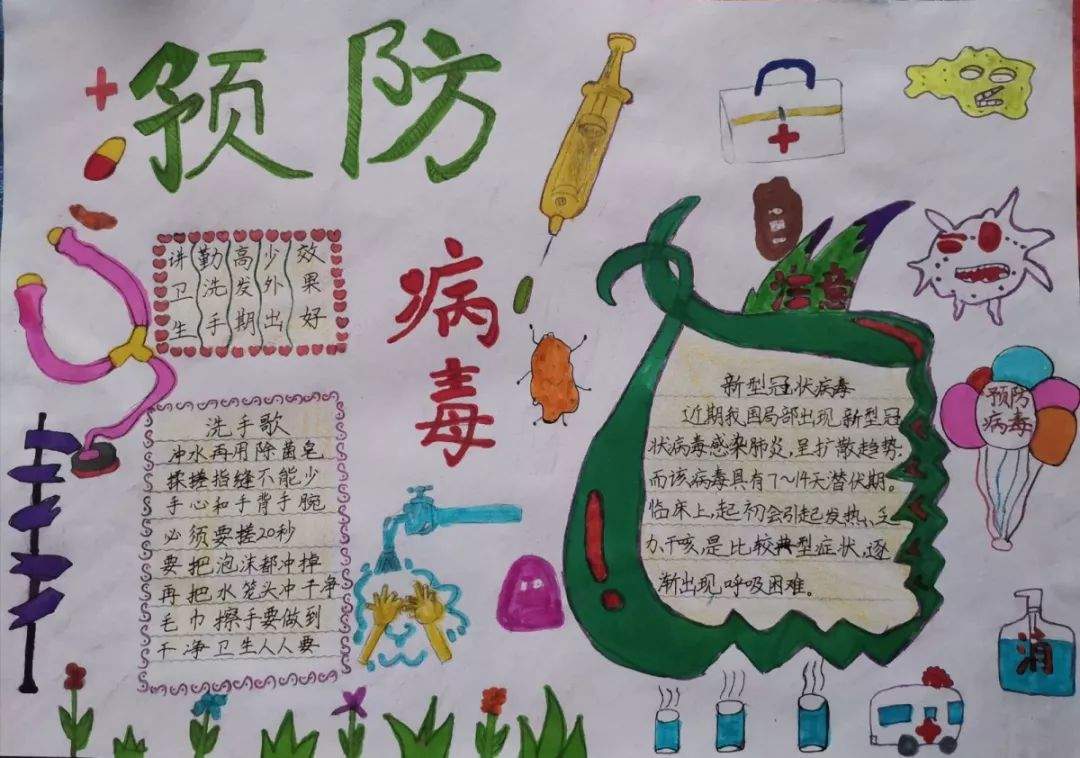 预防
病毒
讲卫生
勤洗手
高发期
少外出
效果好
洗手歌
冲水再用除菌皂
揉搓指缝不能少
手心和手背手腕
必须要搓20秒
要把泡沫都冲掉
再把水笼头冲干净
毛巾擦手要做到
干净卫生人人要
注意
新型冠状病毒
近期我国局部出现新型冠
状病毒感染肺炎,呈扩散趋势.
而该病毒具有7~14天替伏期。
临床上,起初会引起发热、乏
力、干咳,是比较典型症状,逐
渐出现呼吸困难。
预防
病毒
消